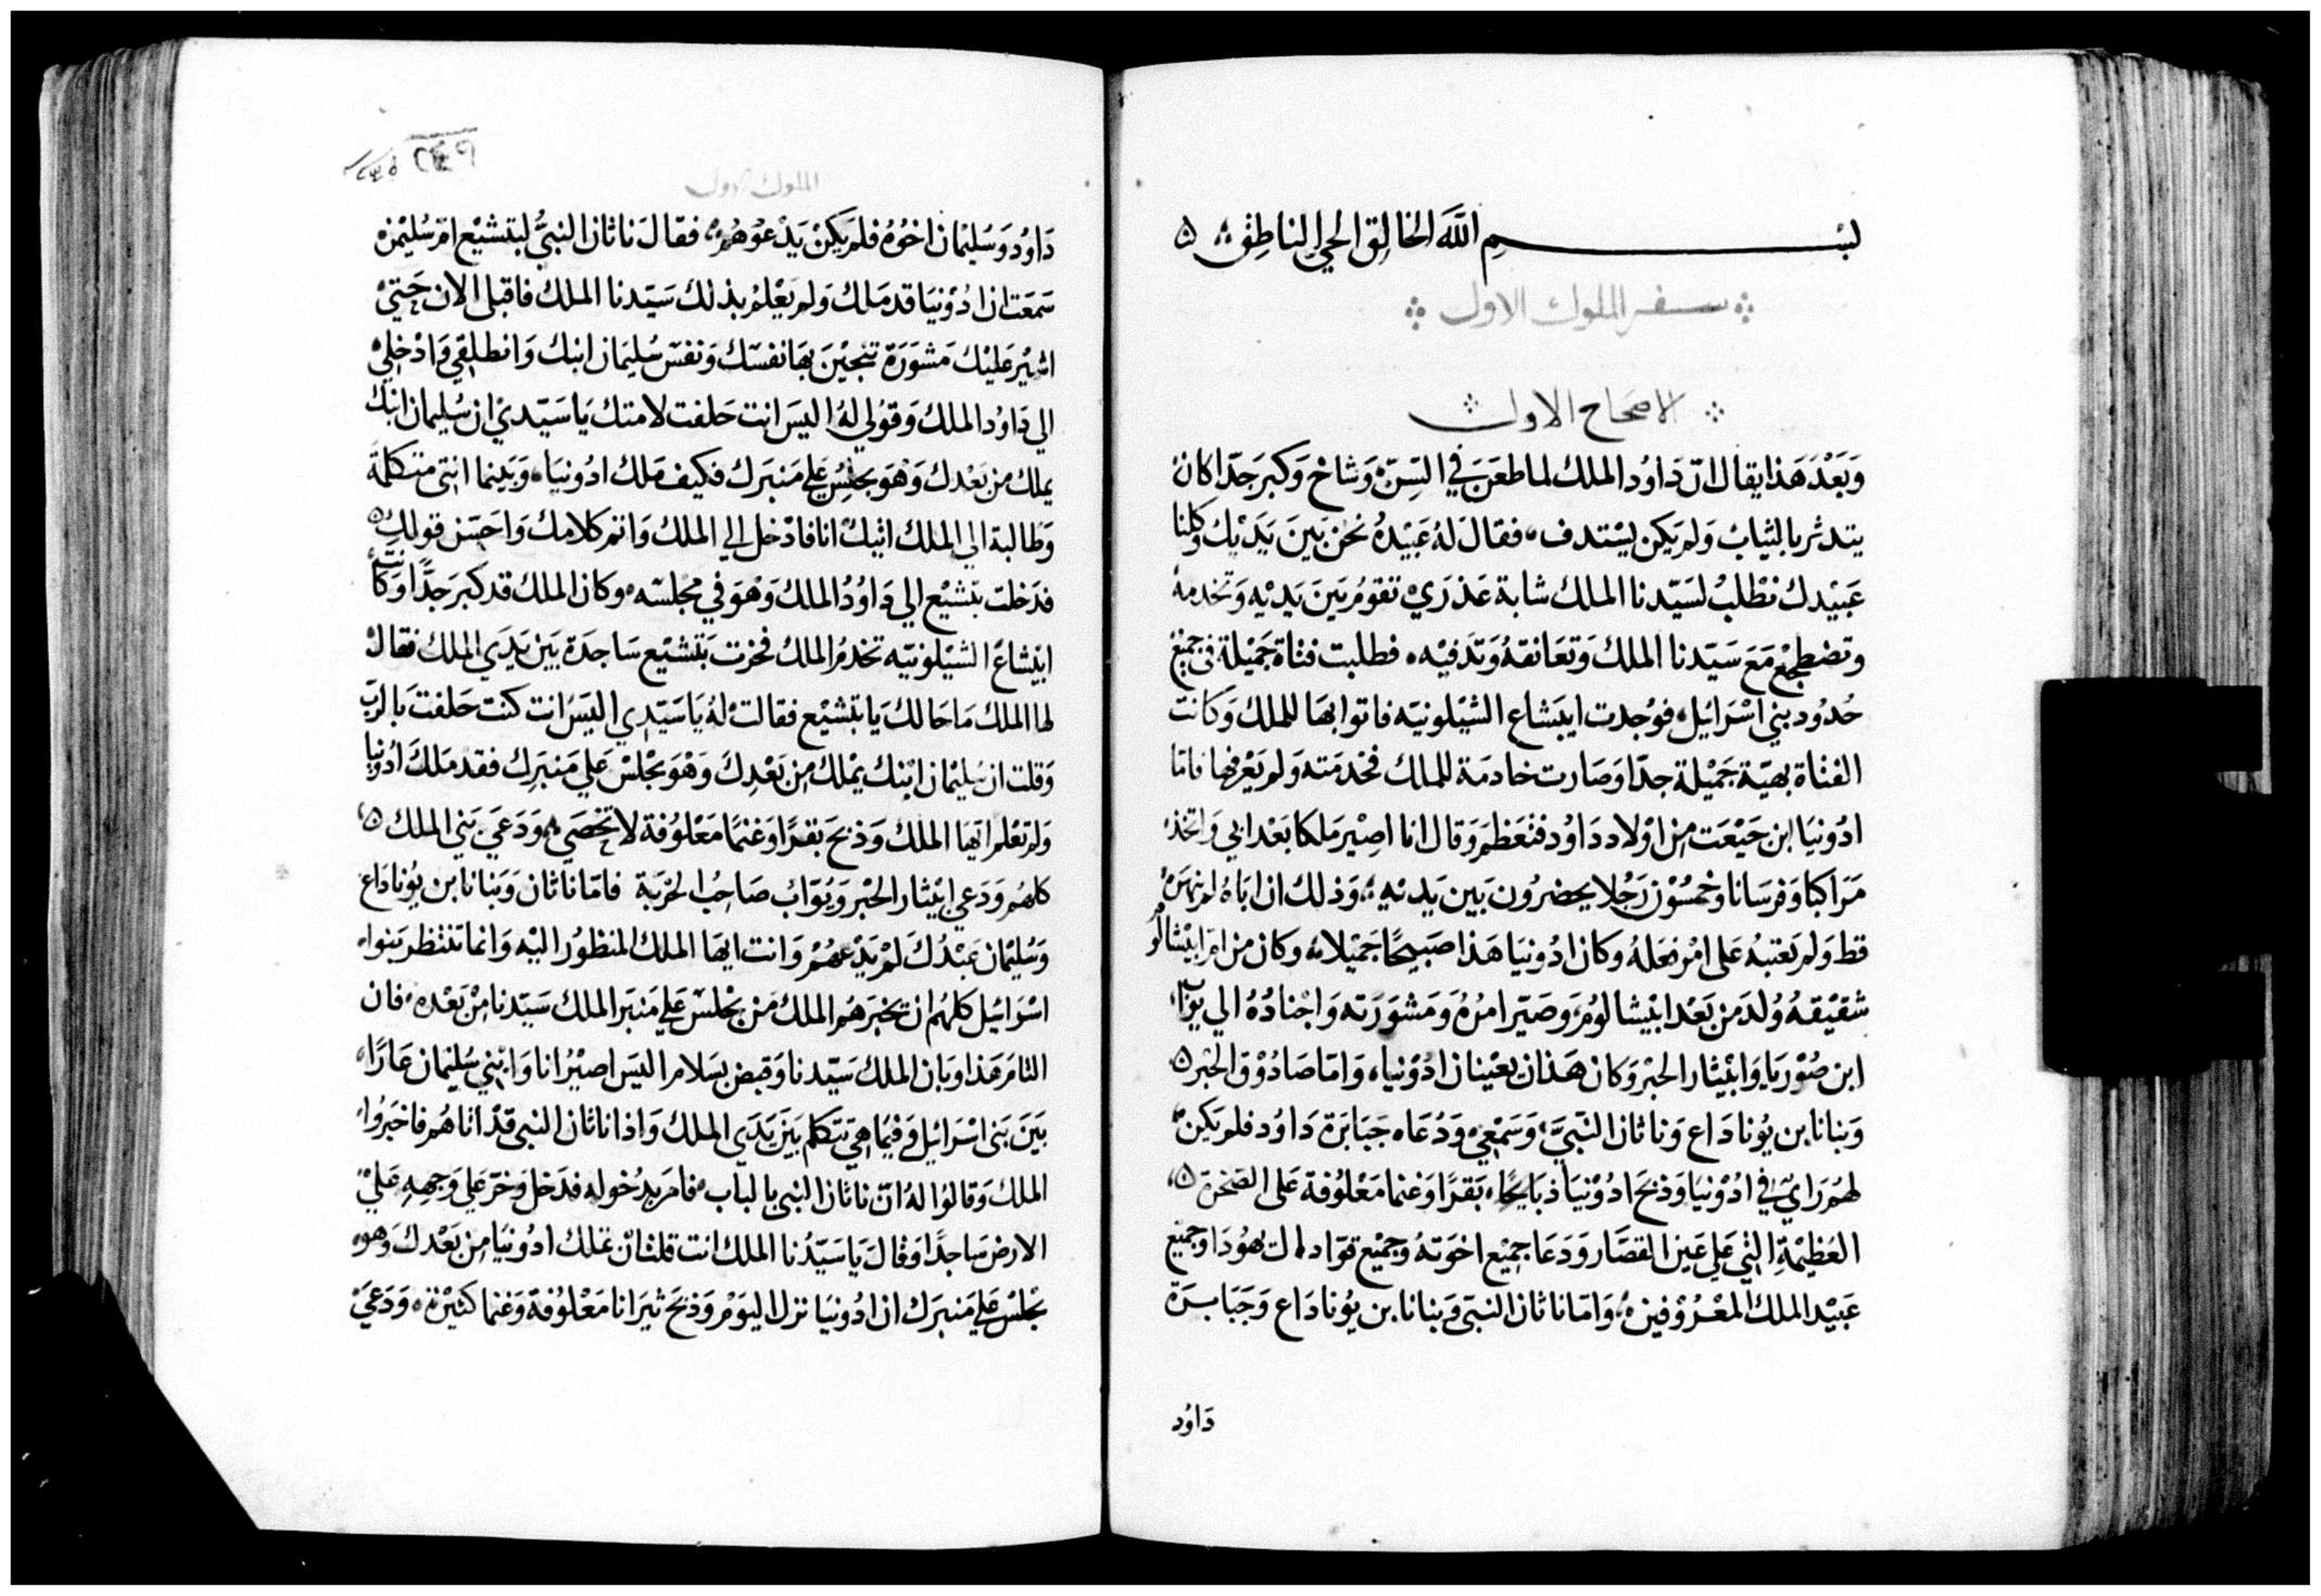 بسم الله الخالق الحي الناطق
سفر الملوك الاول
الاصحاح الاول
وَبَعْدَ هَذا يقال انّ دَاوُد الملك لما طعَن في السِنّ وَشاخ وَكبر جدّا كان
يتدثر بالثياب وَلم يكن يستدف فقالَ لهُ عَبيْدهُ نحن بَينَ يَدَيْك وَكلنا
عَبيْدك نطْلبُ لسَيّدنا الملك شابة عَذرَيْ تقوُم بَينَ يَديْه وَتخدمهُ
وتضطجع مَعَ سَيّدنا الملك وَتعَانقهُ وَتدَفيْه فطلبت فتاة جَميْلة في جميع
حُدُود بني اسْرَائيل فوُجدت ابيَشاع الشيْلونيّه فاتوا بهَا للملك وَكانت
الفتاة بهيّة جَميْلة جدّا وَصَارت خادمَة للملك فخدمَته وَلم يَعْرفها فامّا
ادُونيَا ابن حَيْعَت من اوْلاد دَاوُد فتعَظم وَقال انا اصِيْر مَلكا بَعْد ابي وَاتخذ
مَرَاكبا وَفرسَانا وخمسُوْن رَجُلا يحضرُون بَين يَديْه وَذلك ان ابَاهُ لم ينهَرهُ
قط وَلم يَعتبهُ عَلى امْر فعَلهُ وَكان ادُونيَا هَذا صَبيحًا جَميْلا وكان من امّ ابيْشالوُم
شقيْقهُ وُلدَ من بَعْد ابيْشالوُم وَصَيّر امرُهُ وَمَشوَرَته وَاجْنادُهُ الي يوُاب
ابن صُوْريَا وَابيْثار الحبْر وَكان هَذان يعْينان ادُوْنيا وَامّا صَادُوْق الحْبر
وَبنانا بن يوُنادَاع وَناثان النبيَّ وَسَمْعيْ وَدُعَاه جَبَابَرة دَاوُد فلم يَكن
لهُم رَاي في ادُوْنيَا وَذبحَ ادُوْنيَا ذبَايحًا بَقرًا وَغنما مَعْلوُفة عَلى الصَخرة
العَظيْمةِ التي عَلي عَين القصَّار وَدَعَا جميْع اخوَتهُ وَجميْع قوَاد ال يهُودَا وَجميْع
عَبيْد الملك المعْرُوْفين وَامّا ناثان النبي وَبنانا بن يوُنادَاع وَجَبَابرَة
دَاوُد
الملوك الاول
٢٤٩
دَاوُد وَسُليْمان اخوُهُ فلم يَكنْ يَدْعوْهُم فقالَ ناثان النبيُّ لبتشبَع ام سُليْمن
سَمَعَت ان ادُوْنيَا قد مَلك وَلم يَعْلمُ بذلك سَيّدنا الملك فاقبل الان حَتيْ
اشيْر عَليْك مَشوَرَة تنجيْنَ بهَا نفسَك وَنفسَ سُليمَان ابنك وَانطلقي وَادْخليْ
الي دَاوُد الملك وَقوُلي لهُ اليسَ انت حَلفت لامتك يَا سَيّدي ان سُليمان ابنك
يملك من بَعْدك وَهوَ يجلسُ عَلي مَنبَرك فكيف مَلك ادُونيَا وَبَينما انتي متكلمَة
وَطالبَة الي الملك اتيك انا فادْخل الي الملك وَاتم كلامك وَاحَسّن قولكِ
فدَخلت بتشبَع الي دَاوُدُ الملك وَهْوَ في مجلسَه وَكان الملك قد كبرَ جَدًّا وَكانت
ابيْشاعَ الشيْلونيّه تخدمُ الملك فخرت بَتشبَع سَاجدَة بَين يَدَي الملك فقال
لها الملك مَا حَالك يَا بتشبَع فقالت لهُ يَا سَيّدي اليسَ انت كنت حَلفت بَالربّ
وَقلت ان سُليْمان ابْنك يمْلك من بَعْدِكَ وَهْوَ يجْلسْ عَلي مَنبَرِك فقد مَلكَ ادُونيا
وَلم تعْلم ايّها الملك وَذبحَ بقرًا وَغنمًا مَعْلوُفة لا تحْصَي وَدَعي بَني الملك
كلهُم وَدَعي ابيْثار الحبْر وَيوُاب صَاحبُ الحرْبَة فامّا ناثان وَبَنانا بن يوُنادَاع
وَسُليْمان عَبْدُكَ لمْ يَدْعهُمْ وَانت ايهَا الملك المنظوُر اليْه وَانما تنتظر بَنوا
اسْرَائيْل كلهُم ان تخبرَهُم الملك مَن يجْلسْ عَلي مَنبَر الملك سَيّدنا منْ بَعْده فان
التامَ هَذا وَبان الملك سَيّدنا وَقبض بسَلام اليسَ اصيْرُ انا وَابْني سُليْمان عَارًا
بَينَ بَني اسْرَائيل وَفيْمَا هيَ تتكلم بَينَ يَدَي الملك وَاذا ناثان النبي قدْ اتاهُم فاخبَرُوا
الملك وَقالوُا لهُ انّ ناثان النبي بالباب فامَر بدُخوله فدَخل وَخرّ عَلي وَجههِ عَليْ
الارض سَاجدًا وَقالَ يَا سَيّدُنا الملك انت قلت انّ تملك ادُونيَا من بَعْدكَ وَهو
يجلسْ عَلي مَنبرَك ان ادُونيَا نزل اليَوْم وَذبحَ ثيرَانا مَعْلوُفة وَغنما كثيْرَة وَدَعيَ